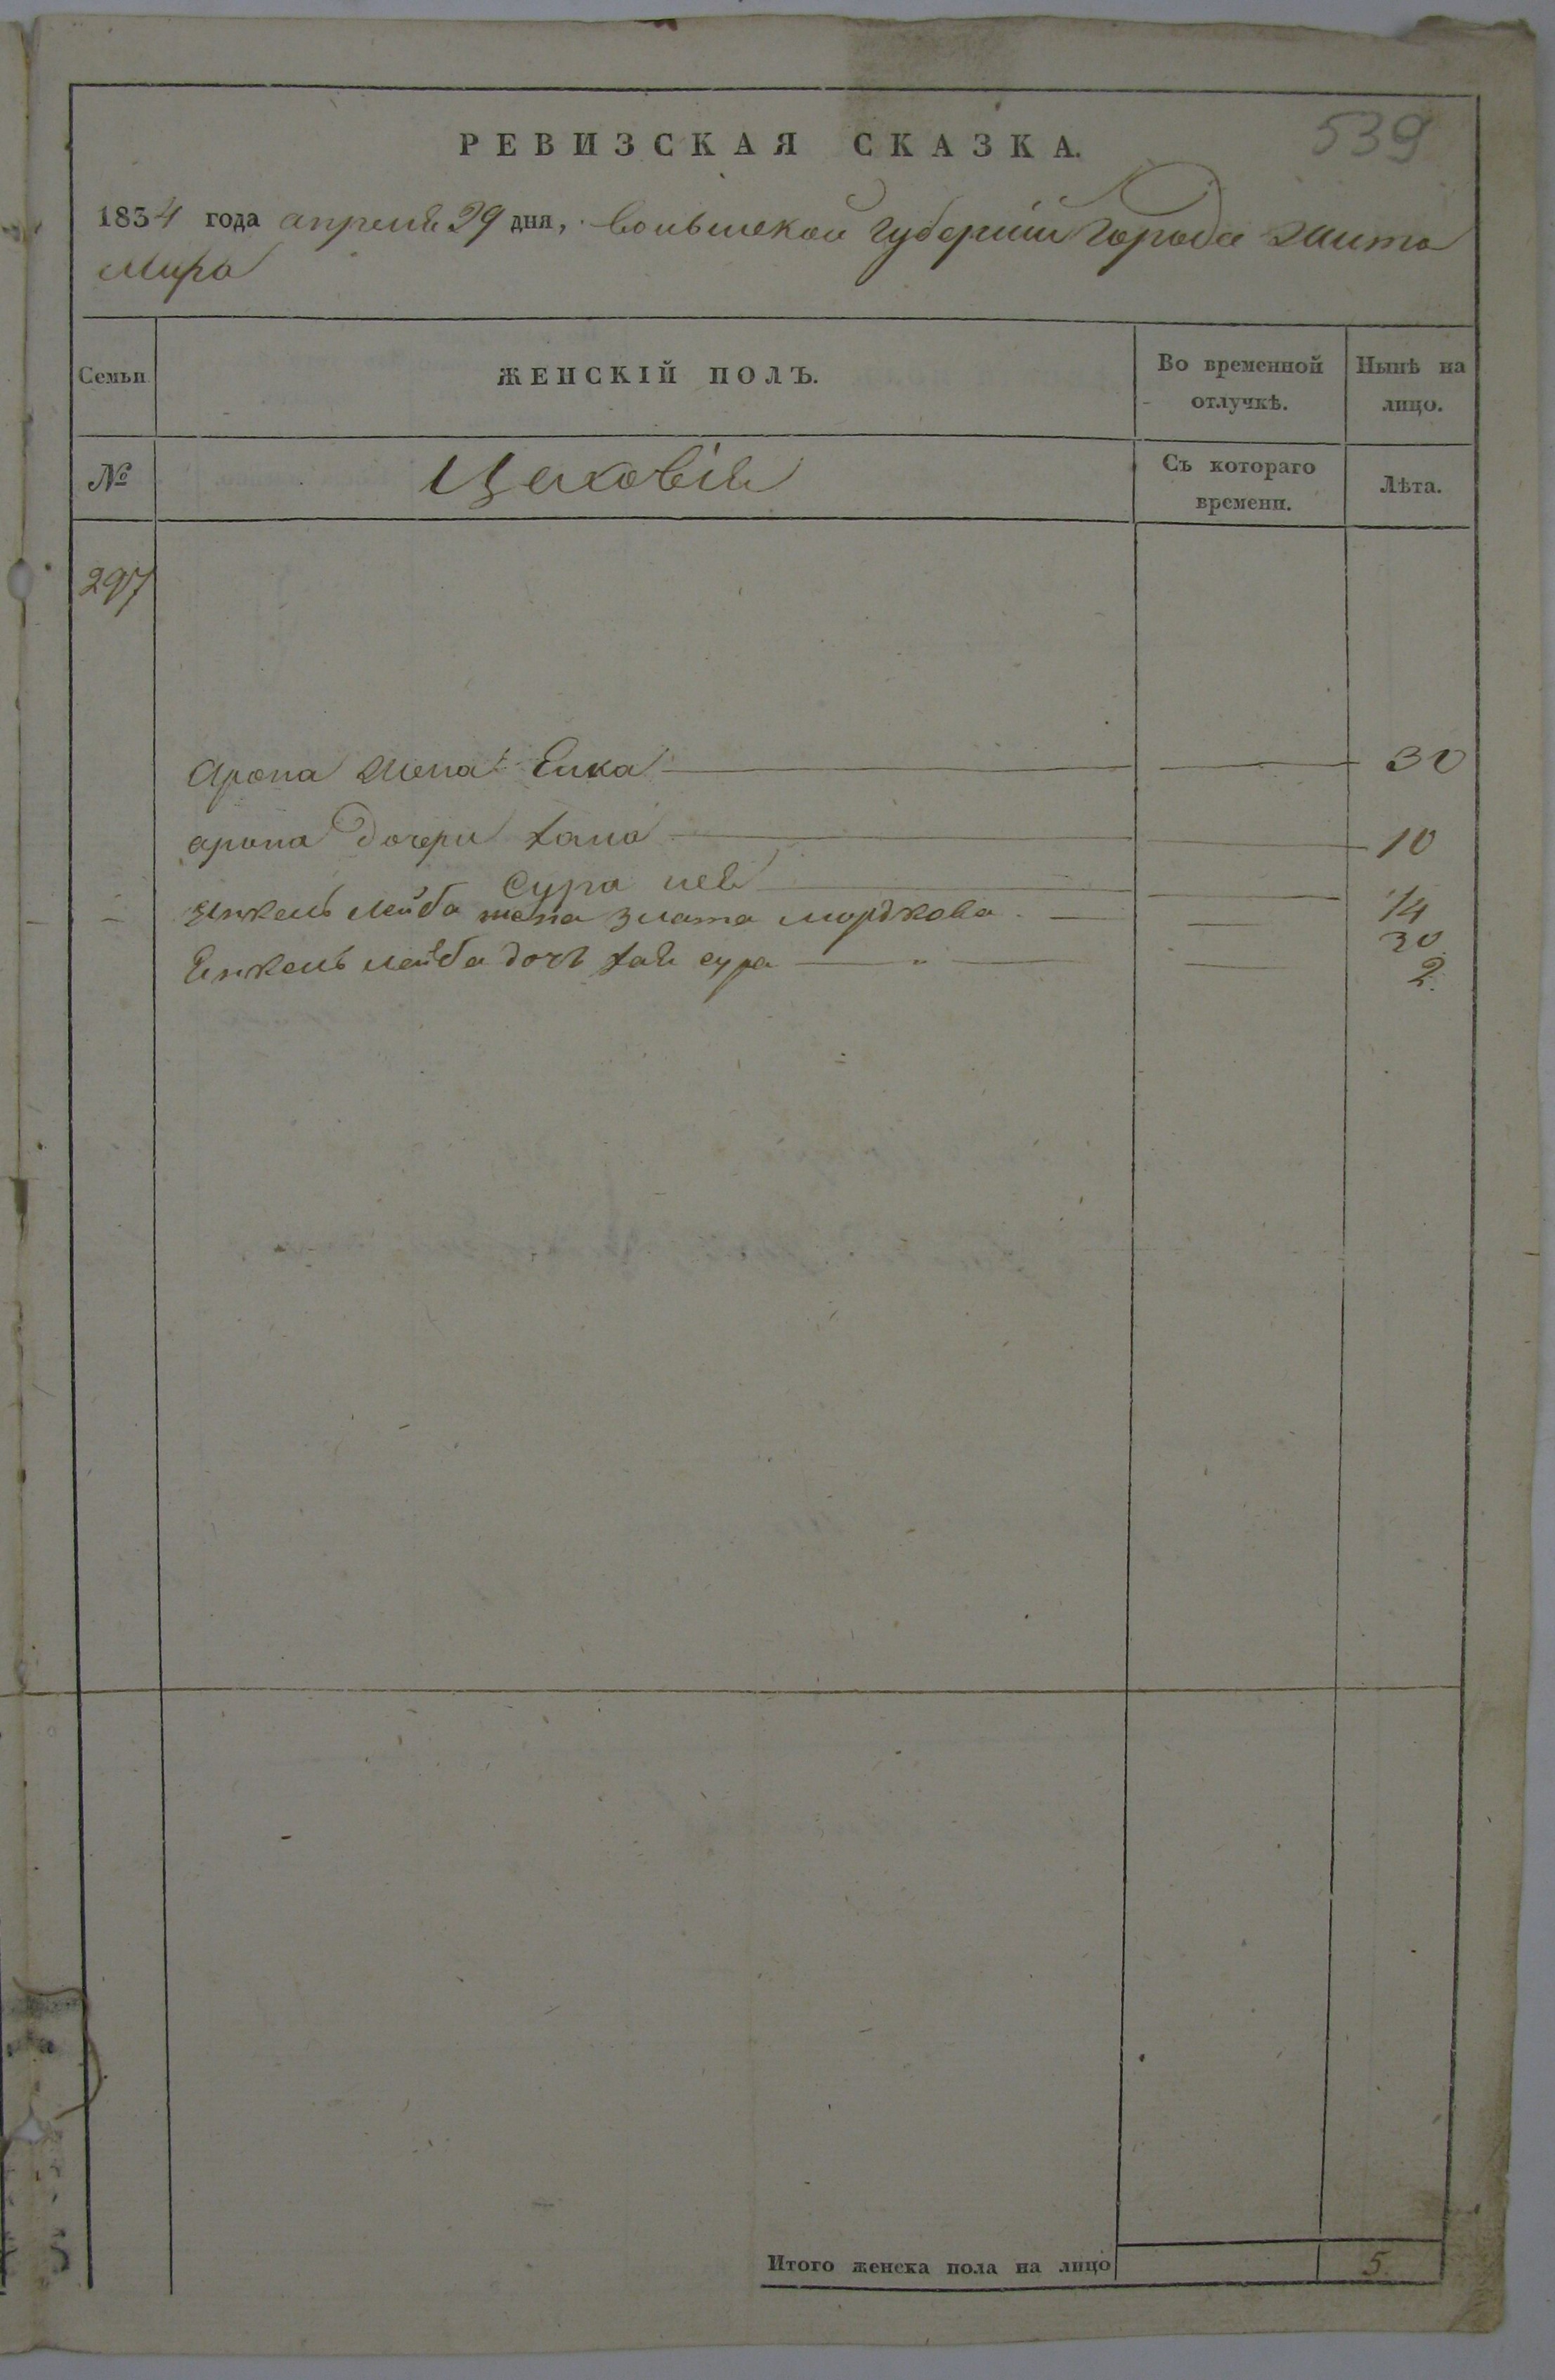 РЕВИЗСКАЯ СКАЗКА.
539
1834 года апреля 29 дня, волынской Губернии Города Жито
мира
Семьи
ЖЕНСКІЙ ПОЛЪ.
Во временной отлучкѣ.
Нынѣ на лицо.
№
Цеховія
Съ котораго времени.
Лѣта.
297
Арона Жена Енка 30
арона дочери хана 10
Сура лея 14
Янкель лейба жена злата мордкова 30
Енкель лейба дочь хая сура 2.
Итого женска пола на лицо 5.